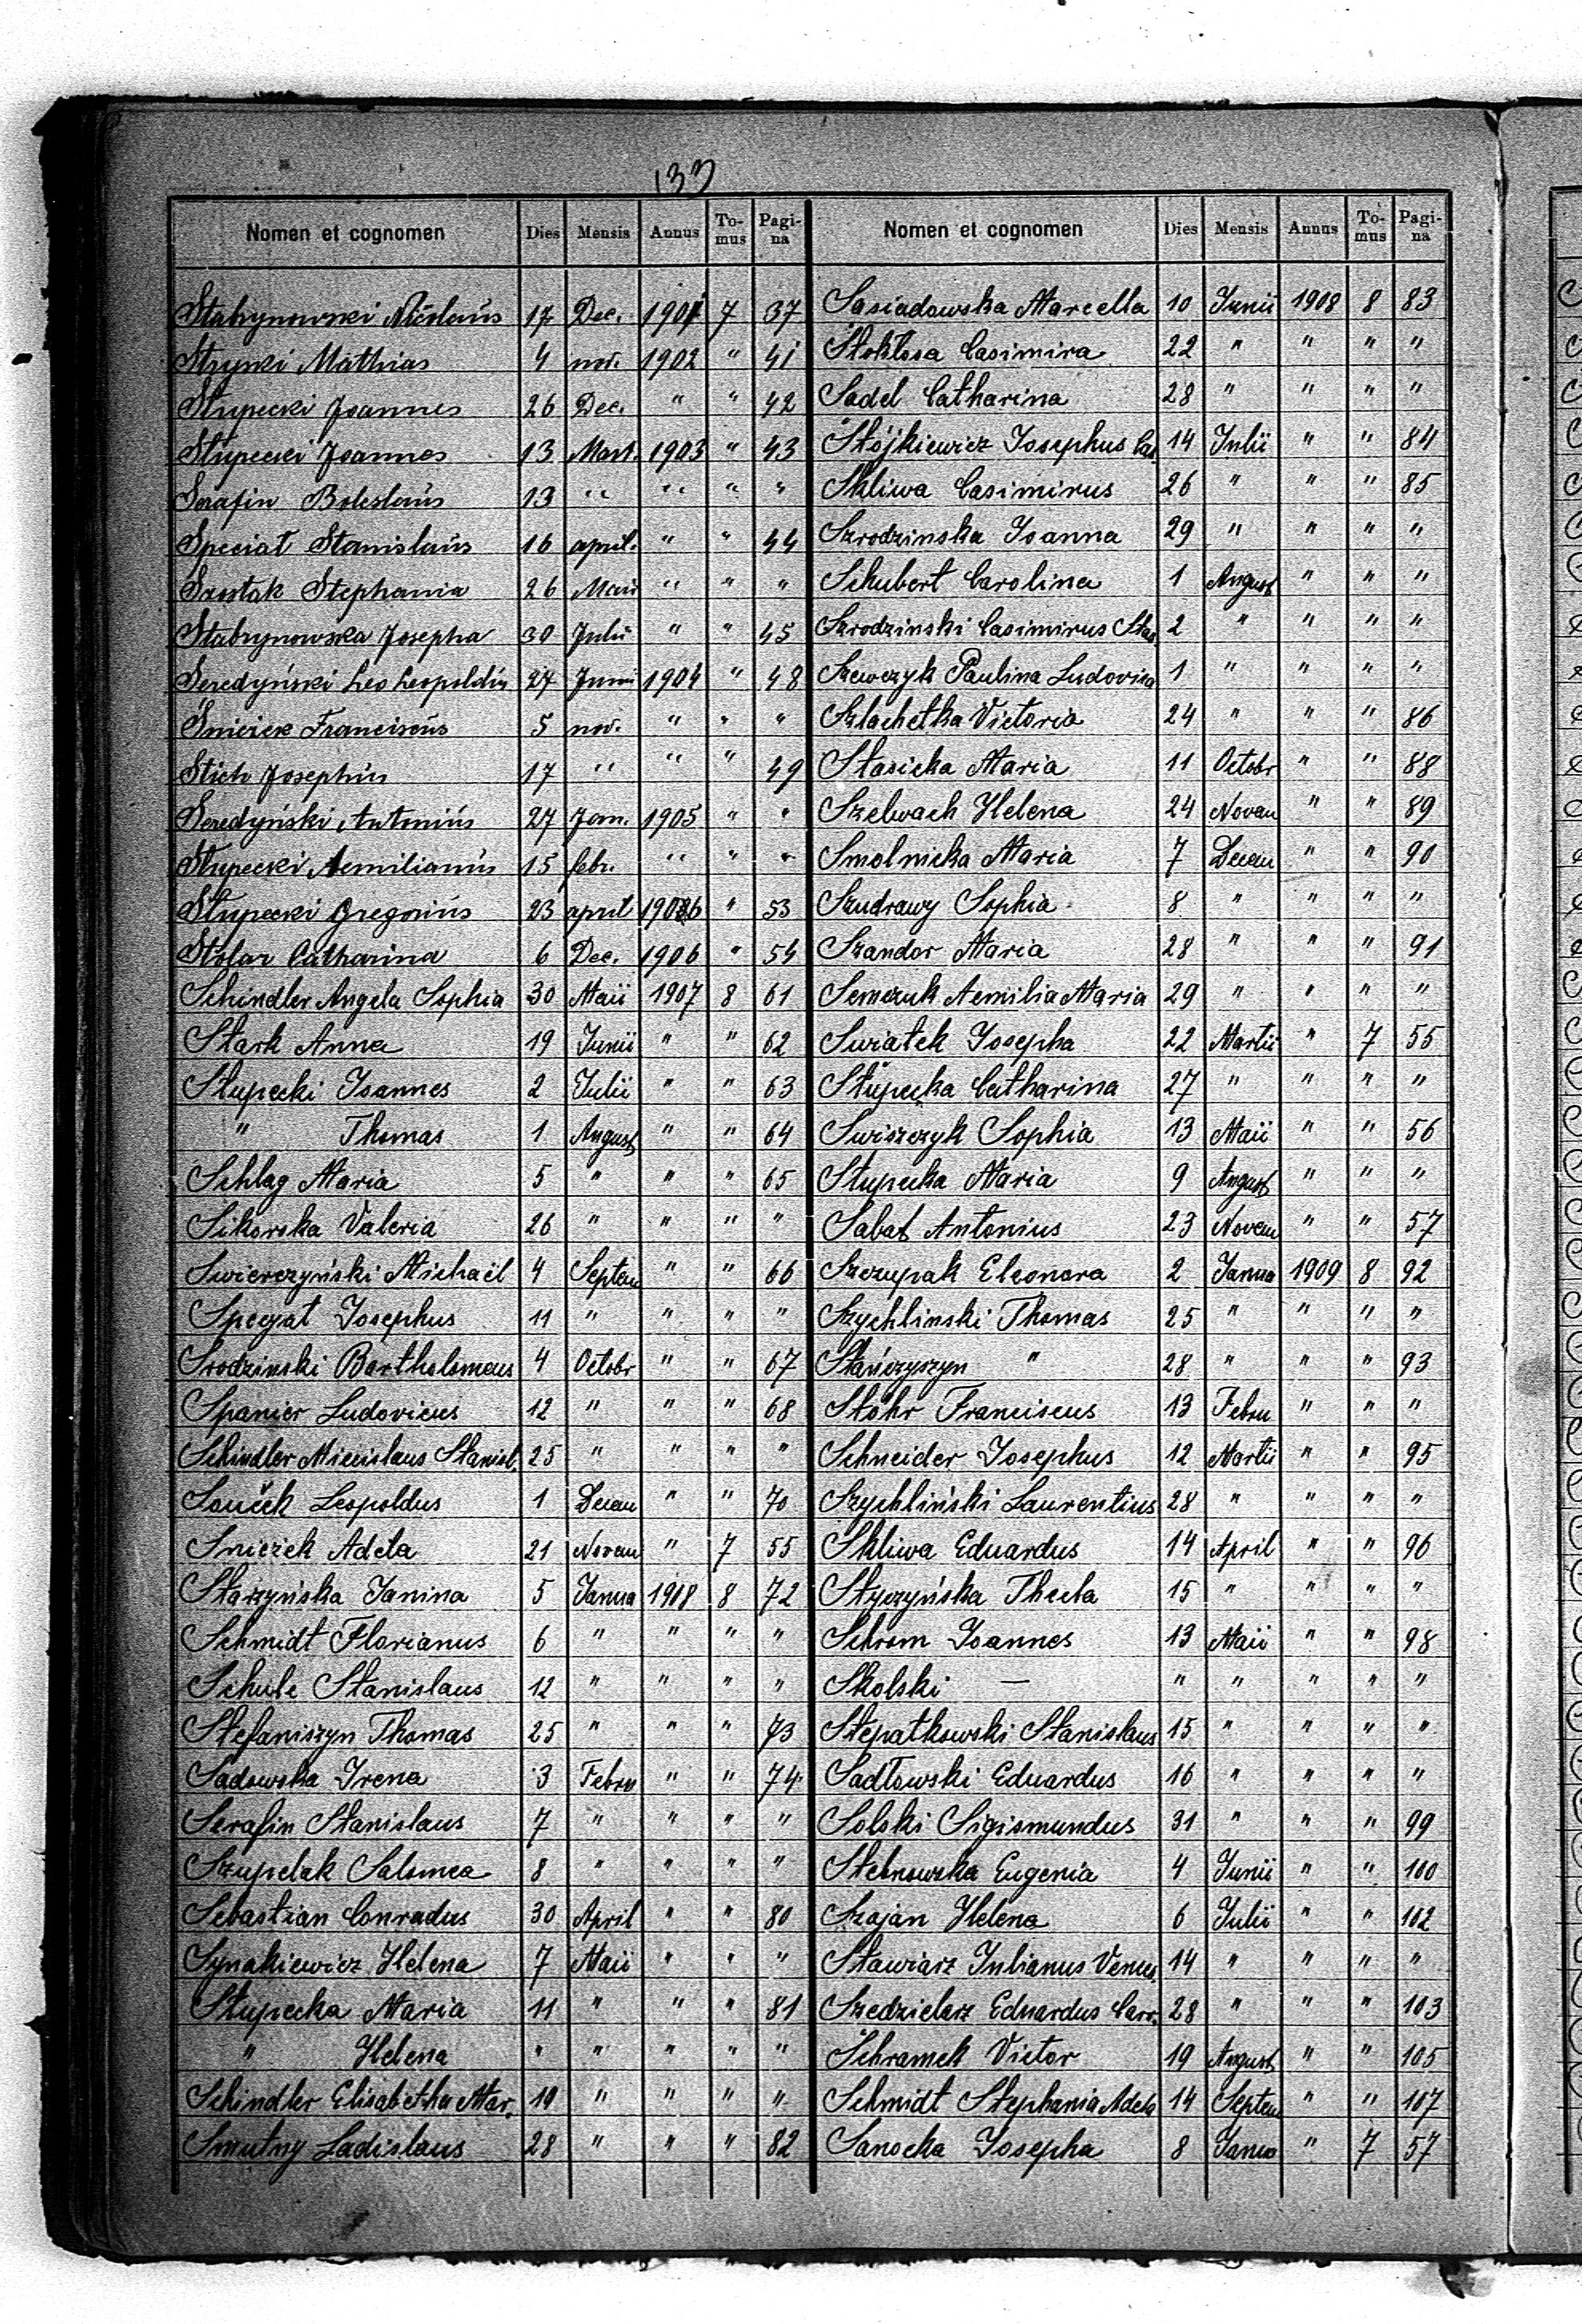 133
Nomen et cognomen Dies Mensis Annus To-mus Pagi-na
Stabrynowski Nicolaus 17 Dec. 1901 7 37
Stryski Mathias 4 nov. 1902 " 41
Słupecki Joannes 26 Dec. " " 42
Słupecki Joannes 13 Mart. 1903 " 43
Serafin Boleslaus 13 " " " "
Speciat Stanislaus 16 april. " " 44
Szostak Stephania 26 Maii " " "
Stabrynowska Josepha 30 Julii " " 45
Seredyński Leo Leopoldus 27 Junii 1904 " 48
Śnieżek Franciscus 5 nov. " " "
Stich Josephus 17 " " " 49
Seredyński Antonius 27 Jan. 1905 " "
Słupecki Aemilianus 15 febr. " " "
Słupecki Gregorius 23 april 1906 " 53
Stolar Catharina 6 Dec. 1906 " 54
Schindler Angela Sophia 30 Maii 1907 8 61
Stark Anna 19 Junii " " 62
Słupecki Joannes 2 Julii " " 63
" Thomas 1 August " " 64
Schlag Maria 5 " " " 65
Sikorska Valeria 26 " " " "
Swierczyński Michaël 4 Septem " " 66
Specyat Josephus 11 " " " "
Srodzinski Bartholomeus 4 Octobr " " 67
Spanier Ludovicus 12 " " " 68
Schindler Miecislaus Stanisl. 25 " " " "
Souček Leopoldus 1 Decem " " 70
Snieżek Adela 21 Novem " 7 55
Starzyńska Janina 5 Janua 1908 8 72
Schmidt Florianus 6 " " " "
Schule Stanislaus 12 " " " "
Stefaniszyn Thomas 25 " " " 73
Sadowska Irena 3 Febru " " 74
Serafin Stanislaus 7 " " " "
Szupelak Salomea 8 " " " "
Sebastian Conradus 30 April " " 80
Synakiewicz Helena 7 Maii " " "
Słupecka Maria 11 " " " 81
" Helena " " " " "
Schindler Elisabetha Mar. 19 " " " "
Smutny Ladislaus 28 " " " 82
Nomen et cognomen Dies Mensis Annus To-mus Pagi-na
Sasiadowska Marcella 10 Junii 1908 8 83
Stokłosa Casimira 22 " " " "
Sadel Catharina 28 " " " "
Stójkiewicz Josephus Cas. 14 Julii " " 84
Skliwa Casimirus 26 " " " 85
Szrodzinska Joanna 29 " " " "
Schubert Carolina 1 August " " "
Szrodzinski Casimirus Stan. 2 " " " "
Szewczyk Paulina Ludovica 1 " " " "
Szlachetka Victoria 24 " " " 86
Stasicka Maria 11 Octobr " " 88
Szelwach Helena 24 Novem " " 89
Smolnicka Maria 7 Decem " " 90
Szudrawy Sophia 8 " " " "
Szandor Maria 28 " " " 91
Semczuk Aemilia Maria 29 " " " "
Swiatek Josepha 22 Martii " 7 55
Słupecka Catharina 27 " " " "
Swiszczyk Sophia 13 Maii " " 56
Słupecka Maria 9 August " " "
Sabat Antonius 23 Novem " " 57
Szczupak Eleonora 2 Janua 1909 8 92
Szychlinski Thomas 25 " " " "
Stańczyszyn " 28 " " " 93
Stöhr Franciscus 13 Febru " " "
Schneider Josephus 12 Martii " " 95
Szychliński Laurentius 28 " " " "
Skliwa Eduardus 14 April " " 96
Styczyńska Thecla 15 " " " "
Schrom Joannes 13 Maii " " 98
Skolski — " " " " "
Stepatkowski Stanislaus 15 " " " "
Sadłowski Eduardus 16 " " " "
Solski Sigismundus 31 " " " 99
Stebnowska Eugenia 4 Junii " " 100
Szajan Helena 6 Julii " " 102
Stawiarz Julianus 14 " " " "
Szedzielarz Eduardus Caro. 28 " " " 103
Schramek Victor 19 August " " 105
Schmidt Stephania Adela 14 Septem " " 107
Sanocka Josepha 8 Janua " 7 57